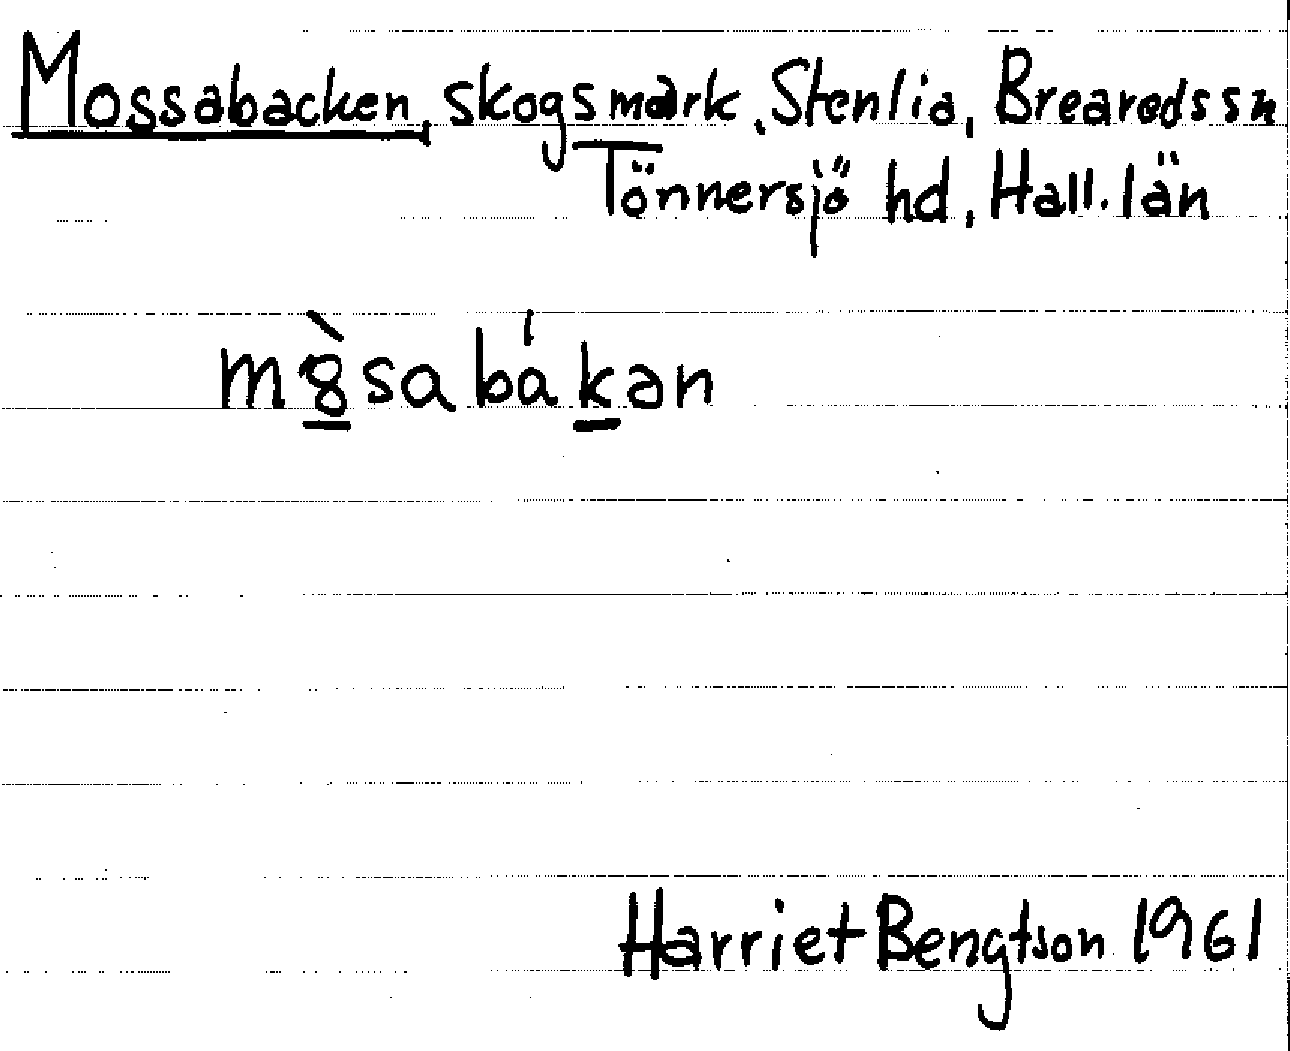 Mossabacken, skogsmark, Stenlia, Breareds sn
Tönnersjö hd, Hall. län
m8̀sabákan
Harriet Bengtson 1961